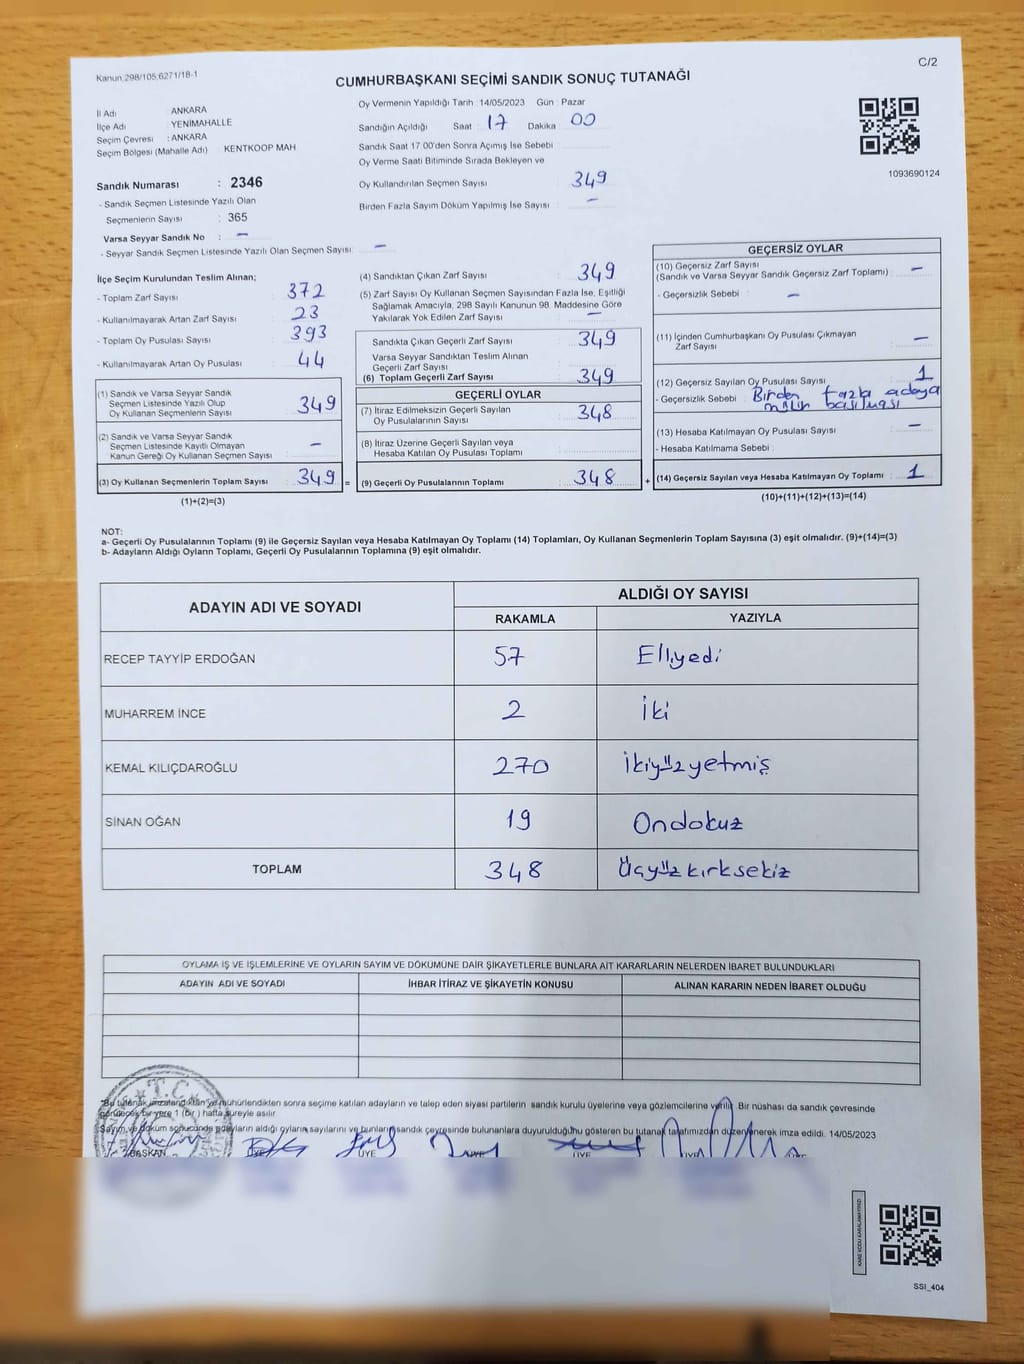 Kanun:298/105,6271/18-1
C/2
CUMHURBAŞKANI SEÇİMİ SANDIK SONUÇ TUTANAĞI
İl Adı ANKARA
İlçe Adı YENİMAHALLE
Seçim Çevresi : ANKARA
Seçim Bölgesi (Mahalle Adı) KENTKOOP MAH
Sandık Numarası : 2346
- Sandık Seçmen Listesinde Yazılı Olan
Seçmenlerin Sayısı : 365
Varsa Seyyar Sandık No : –
- Seyyar Sandık Seçmen Listesinde Yazılı Olan Seçmen Sayısı: –
Oy Vermenin Yapıldığı Tarih : 14/05/2023 Gün : Pazar
Sandığın Açıldığı Saat : 17 Dakika : 00
Sandık Saat 17.00'den Sonra Açımış İse Sebebi
Oy Verme Saati Bitiminde Sırada Bekleyen ve
Oy Kullandırılan Seçmen Sayısı : 349
Birden Fazla Sayım Döküm Yapılmış İse Sayısı : –
1093690124
İlçe Seçim Kurulundan Teslim Alınan;
- Toplam Zarf Sayısı : 372
- Kullanılmayarak Artan Zarf Sayısı : 23
- Toplam Oy Pusulası Sayısı : 393
- Kullanılmayarak Artan Oy Pusulası : 44
(1) Sandık ve Varsa Seyyar Sandık
Seçmen Listesinde Yazılı Olup
Oy Kullanan Seçmenlerin Sayısı : 349
(2) Sandık ve Varsa Seyyar Sandık
Seçmen Listesinde Kayıtlı Olmayan
Kanun Gereği Oy Kullanan Seçmen Sayısı : –
(3) Oy Kullanan Seçmenlerin Toplam Sayısı : 349 =
(1)+(2)=(3)
(4) Sandıktan Çıkan Zarf Sayısı : 349
(5) Zarf Sayısı Oy Kullanan Seçmen Sayısından Fazla İse, Eşitliği
Sağlamak Amacıyla, 298 Sayılı Kanunun 98. Maddesine Göre
Yakılarak Yok Edilen Zarf Sayısı : –
Sandıkta Çıkan Geçerli Zarf Sayısı : 349
Varsa Seyyar Sandıktan Teslim Alınan
Geçerli Zarf Sayısı :
(6) Toplam Geçerli Zarf Sayısı : 349
GEÇERLİ OYLAR
(7) İtiraz Edilmeksizin Geçerli Sayılan
Oy Pusulalarının Sayısı : 348
(8) İtiraz Üzerine Geçerli Sayılan veya
Hesaba Katılan Oy Pusulası Toplamı :
(9) Geçerli Oy Pusulalarının Toplamı : 348 +
GEÇERSİZ OYLAR
(10) Geçersiz Zarf Sayısı
(Sandık ve Varsa Seyyar Sandık Geçersiz Zarf Toplamı) : –
- Geçersizlik Sebebi : –
(11) İçinden Cumhurbaşkanı Oy Pusulası Çıkmayan
Zarf Sayısı : –
(12) Geçersiz Sayılan Oy Pusulası Sayısı : 1
- Geçersizlik Sebebi : Birden fazla adaya
mührün basılması
(13) Hesaba Katılmayan Oy Pusulası Sayısı : –
- Hesaba Katılmama Sebebi :
(14) Geçersiz Sayılan veya Hesaba Katılmayan Oy Toplamı : 1
(10)+(11)+(12)+(13)=(14)
NOT:
a- Geçerli Oy Pusulalarının Toplamı (9) ile Geçersiz Sayılan veya Hesaba Katılmayan Oy Toplamı (14) Toplamları, Oy Kullanan Seçmenlerin Toplam Sayısına (3) eşit olmalıdır. (9)+(14)=(3)
b- Adayların Aldığı Oyların Toplamı, Geçerli Oy Pusulalarının Toplamına (9) eşit olmalıdır.
ADAYIN ADI VE SOYADI
ALDIĞI OY SAYISI
RAKAMLA YAZIYLA
RECEP TAYYİP ERDOĞAN 57 Elliyedi
MUHARREM İNCE 2 İki
KEMAL KILIÇDAROĞLU 270 İkiyüzyetmiş
SİNAN OĞAN 19 Ondokuz
TOPLAM 348 Üçyüzkırksekiz
OYLAMA İŞ VE İŞLEMLERİNE VE OYLARIN SAYIM VE DÖKÜMÜNE DAİR ŞİKAYETLERLE BUNLARA AİT KARARLARIN NELERDEN İBARET BULUNDUKLARI
ADAYIN ADI VE SOYADI İHBAR İTİRAZ VE ŞİKAYETİN KONUSU ALINAN KARARIN NEDEN İBARET OLDUĞU
T.C.
"Bu tutanak imzalandıktan ve mühürlendikten sonra seçime katılan adayların ve talep eden siyasi partilerin sandık kurulu üyelerine veya gözlemcilerine verilir. Bir nüshası da sandık çevresinde
görülecek bir yere 1 (bir) hafta süreyle asılır.
Sayım ve döküm sonucunda adayların aldığı oyların sayılarını ve bunları sandık çevresinde bulunanlara duyurulduğunu gösteren bu tutanak tarafımızdan düzenlenerek imza edildi. 14/05/2023
BAŞKAN ÜYE ÜYE ÜYE ÜYE ÜYE
KARE KODU KARALAMAYINIZ!
SSI_404